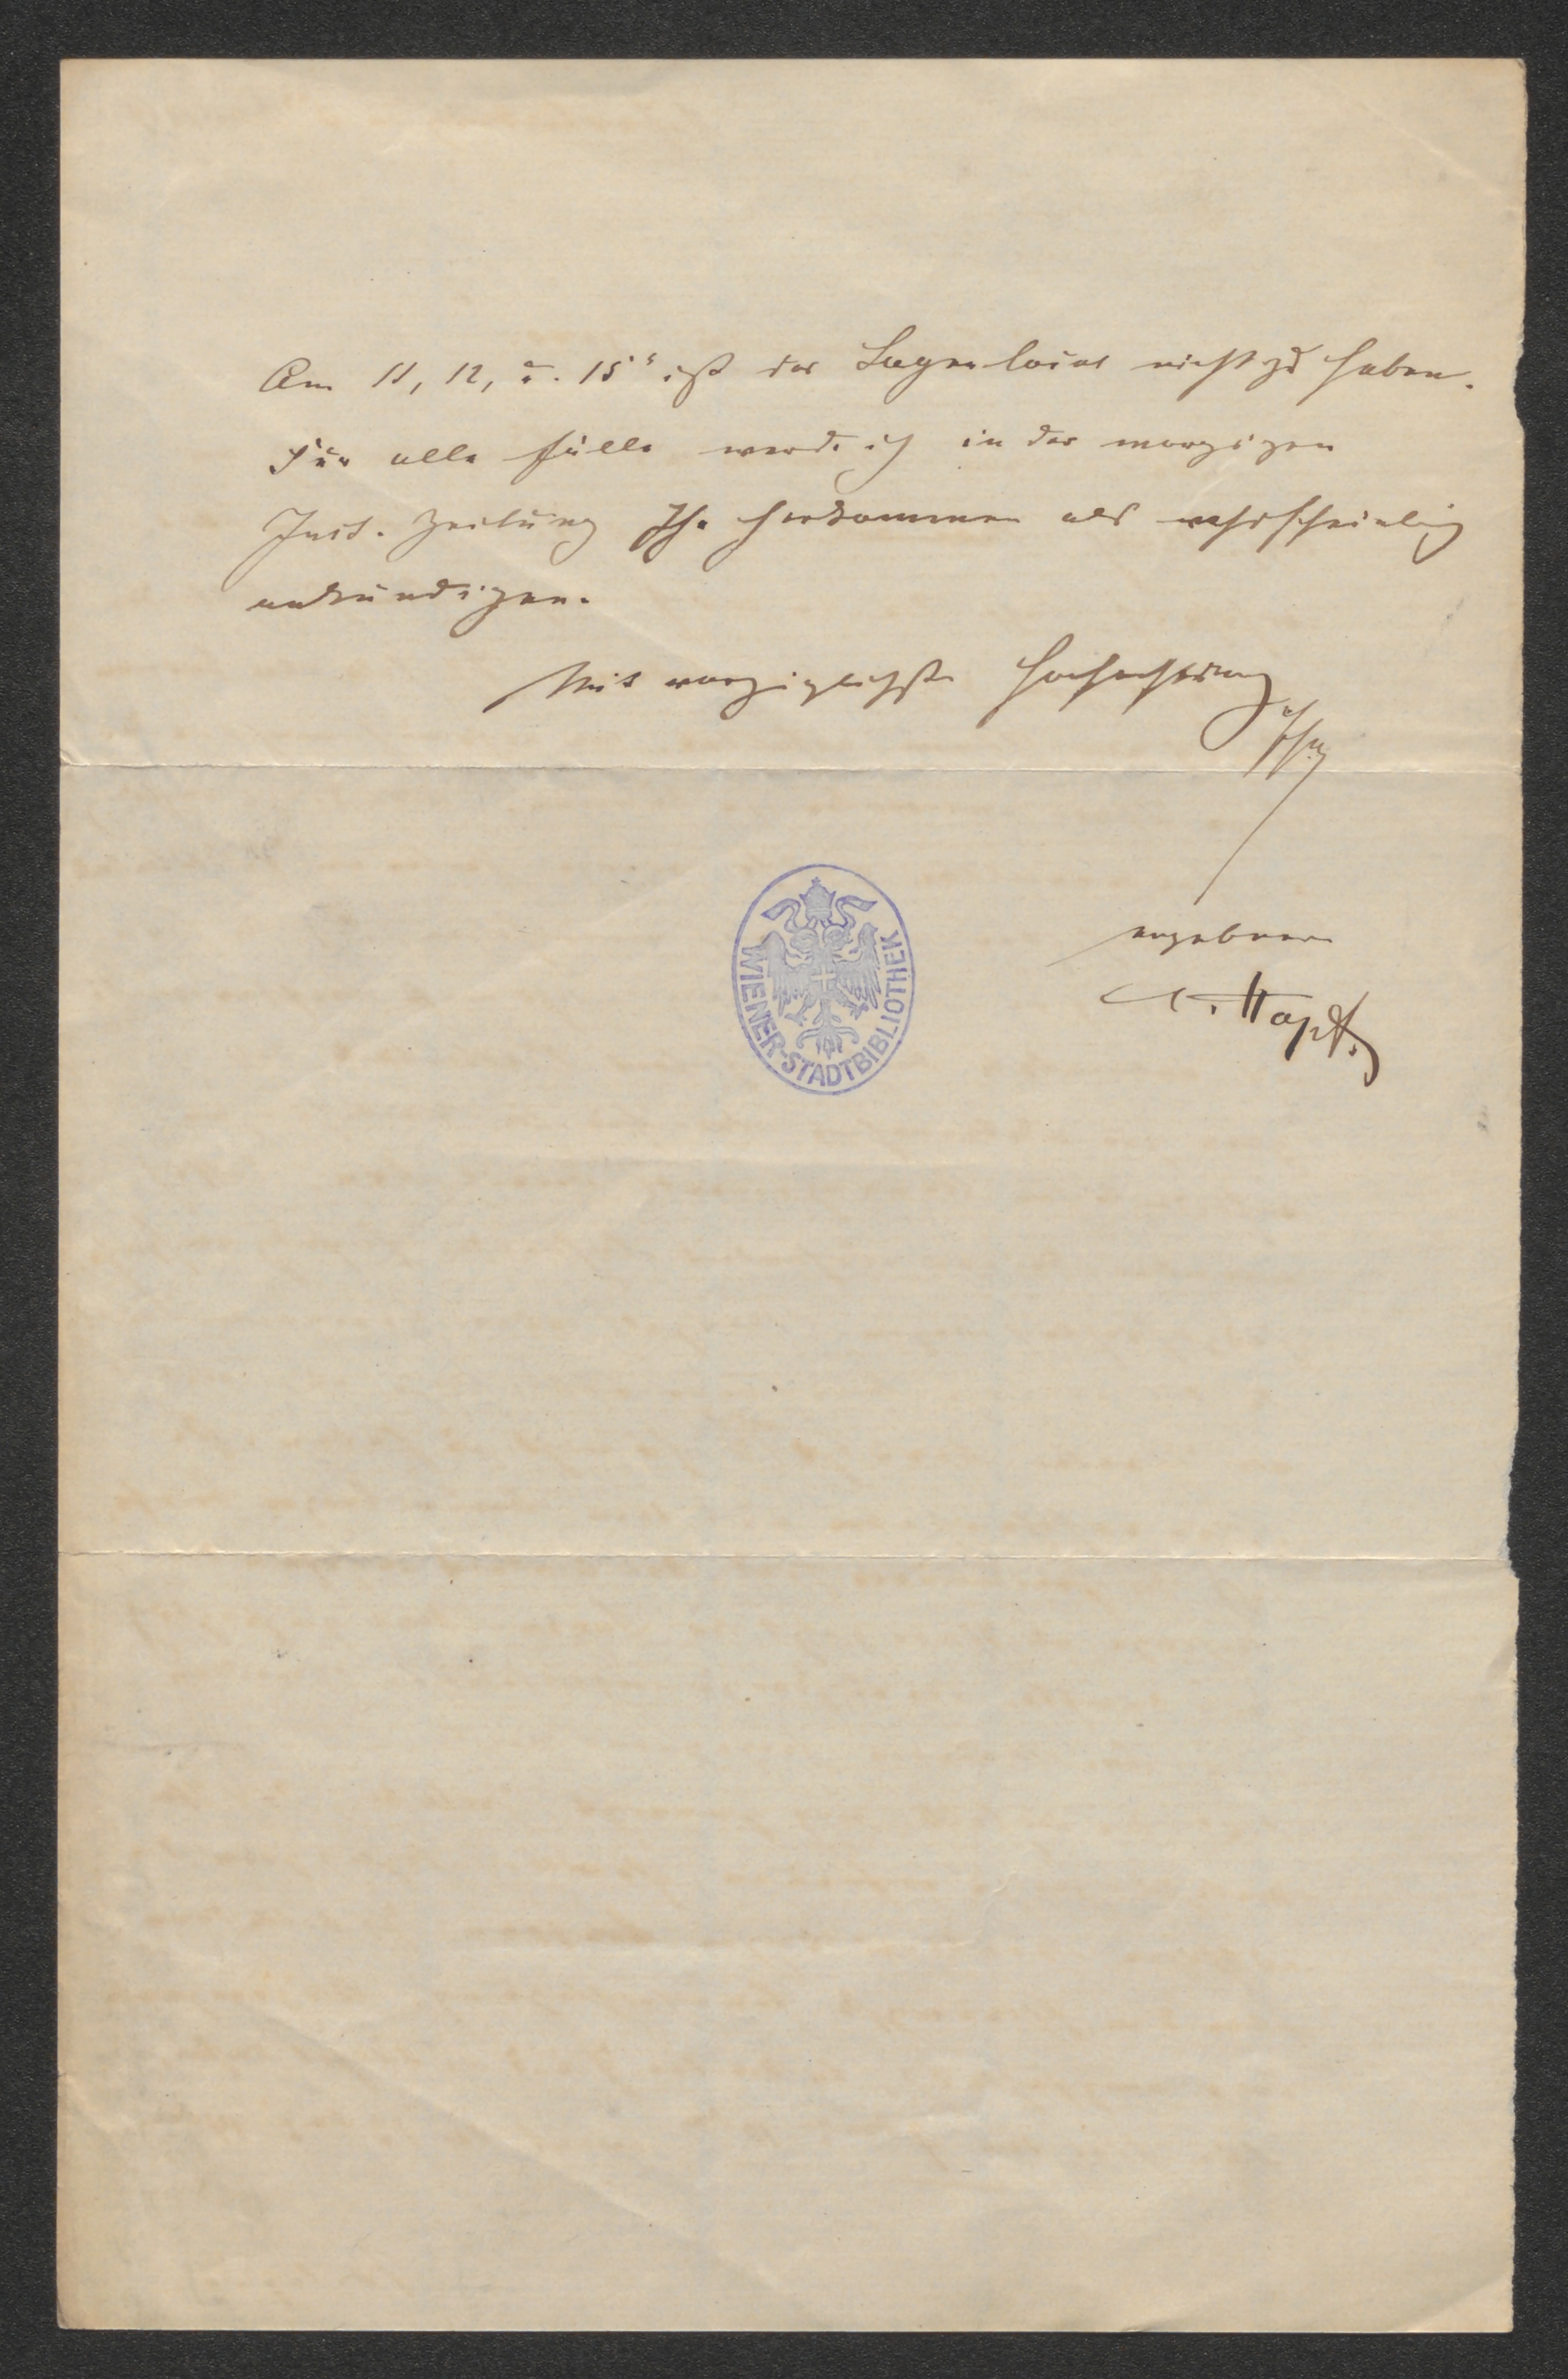 Am 11, 12, u. 15t ist das Lagerlocal nicht zu haben.
Für alle Fälle werde ich in der morgigen
Zeitung Ihr Herkommen als wahrscheinlich
ankündigen.
Mit vorzüglichster Hochachtung
Ihr
ergebener
WIENER-STADTBIBLIOTHEK